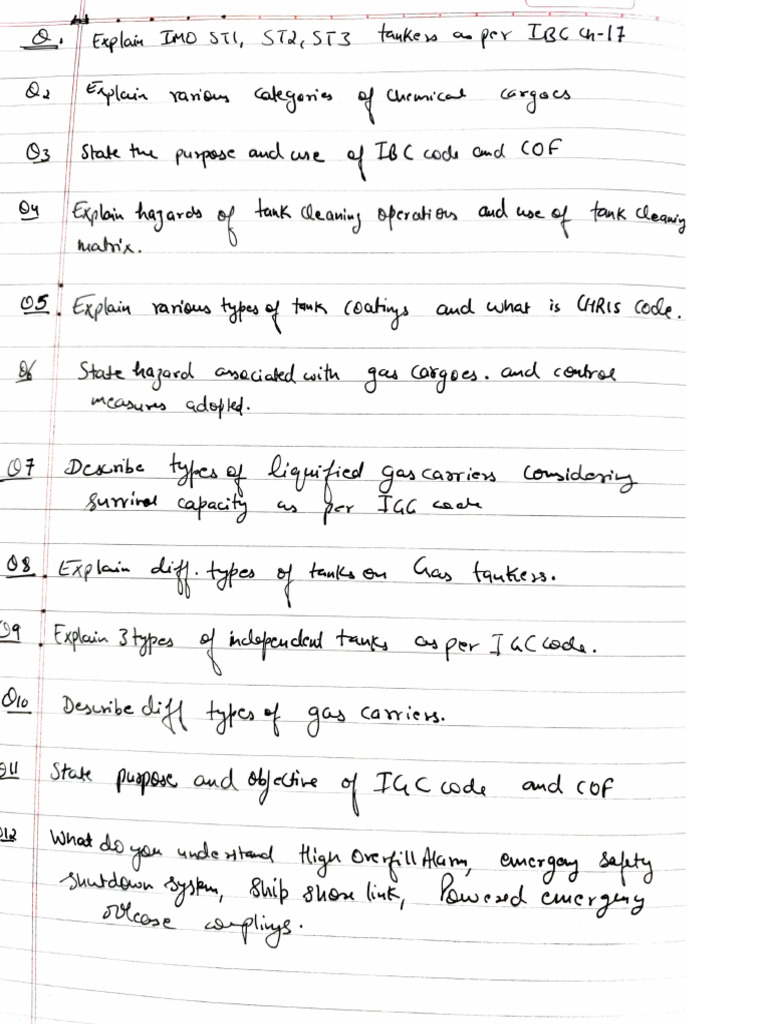 Q. Explain IMO ST1, ST2, ST3 tankers as per IBC Ch-17
Q2 Explain various categories of chemical cargoes
Q3 State the purpose and use of IBC code and COF
Q4 Explain hazards of tank cleaning operations and use of tank cleaning
matrix.
Q5. Explain various types of tank coatings and what is CHRIS code.
Q6 State hazard associated with gas cargoes. and control
measures adopted.
Q7 Describe types of liquified gas carriers considering
survival capacity as per IGC code
Q8. Explain diff. types of tanks on Gas tankers.
Q9. Explain 3 types of independent tanks as per IGC code.
Q10 Describe diff types of gas carriers.
Q11 State purpose and objective of IGC code and COF
Q12 What do you understand High Overfill Alarm, emergency safety
shutdown system, ship shore link, Powered emergency
release couplings.